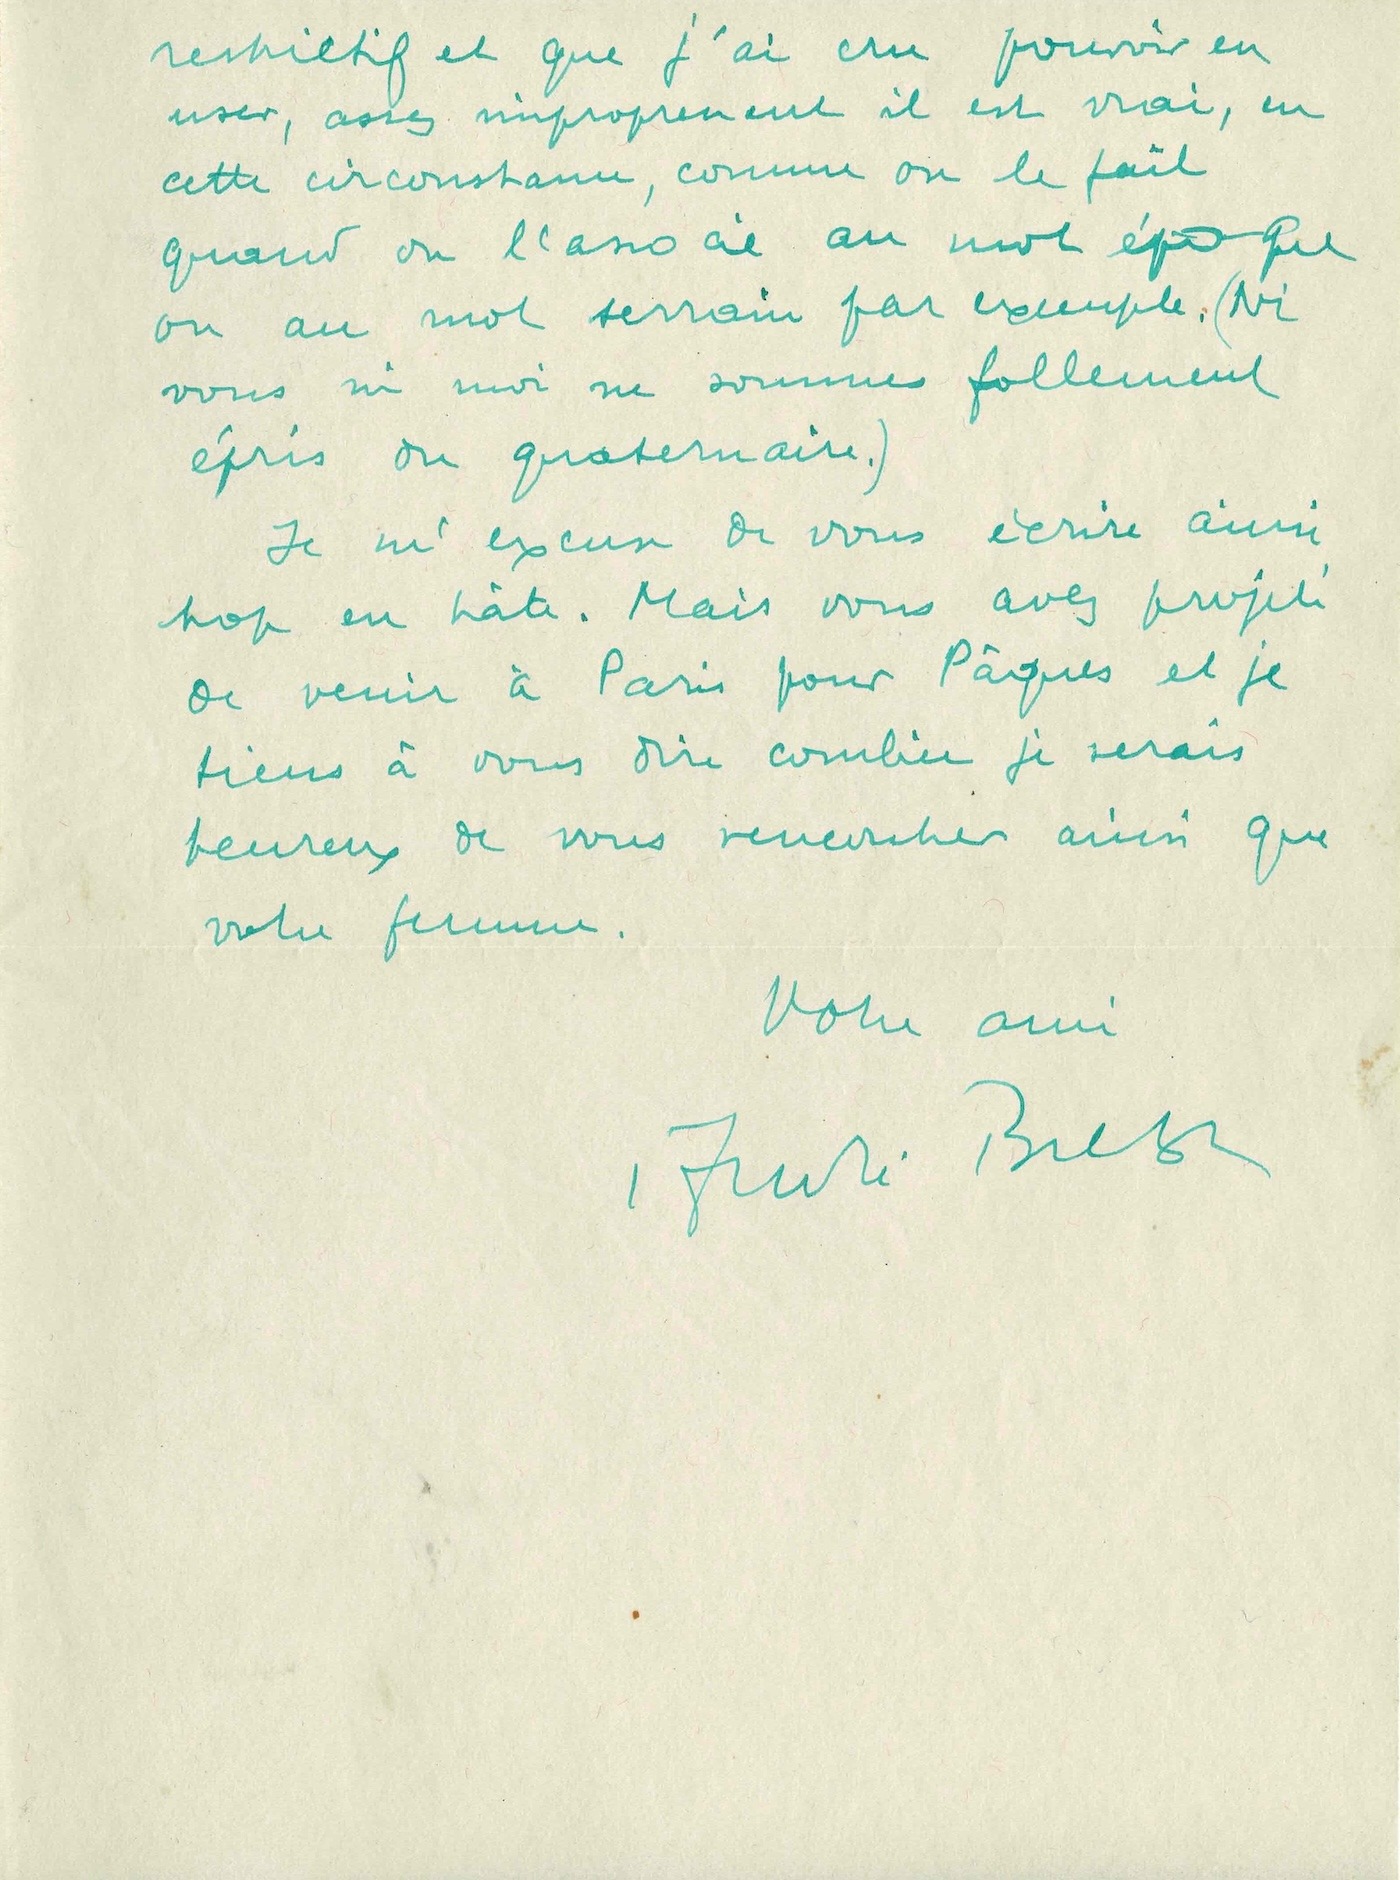 restrictif et que j'ai cru pouvoir en
user, assez improprement il est vrai, en
cette circonstance, comme on le fait
quand on l'associe au mot époque
ou au mot terrain par exemple. (Ni
vous ni moi ne sommes follement
épris du quaternaire.)
Je m'excuse de vous écrire ainsi
trop en hâte. Mais vous avez projeté
de venir à Paris pour Pâques et je
tiens à vous dire combien je serais
heureux de vous rencontrer ainsi que
votre femme.
Votre ami
André Breton